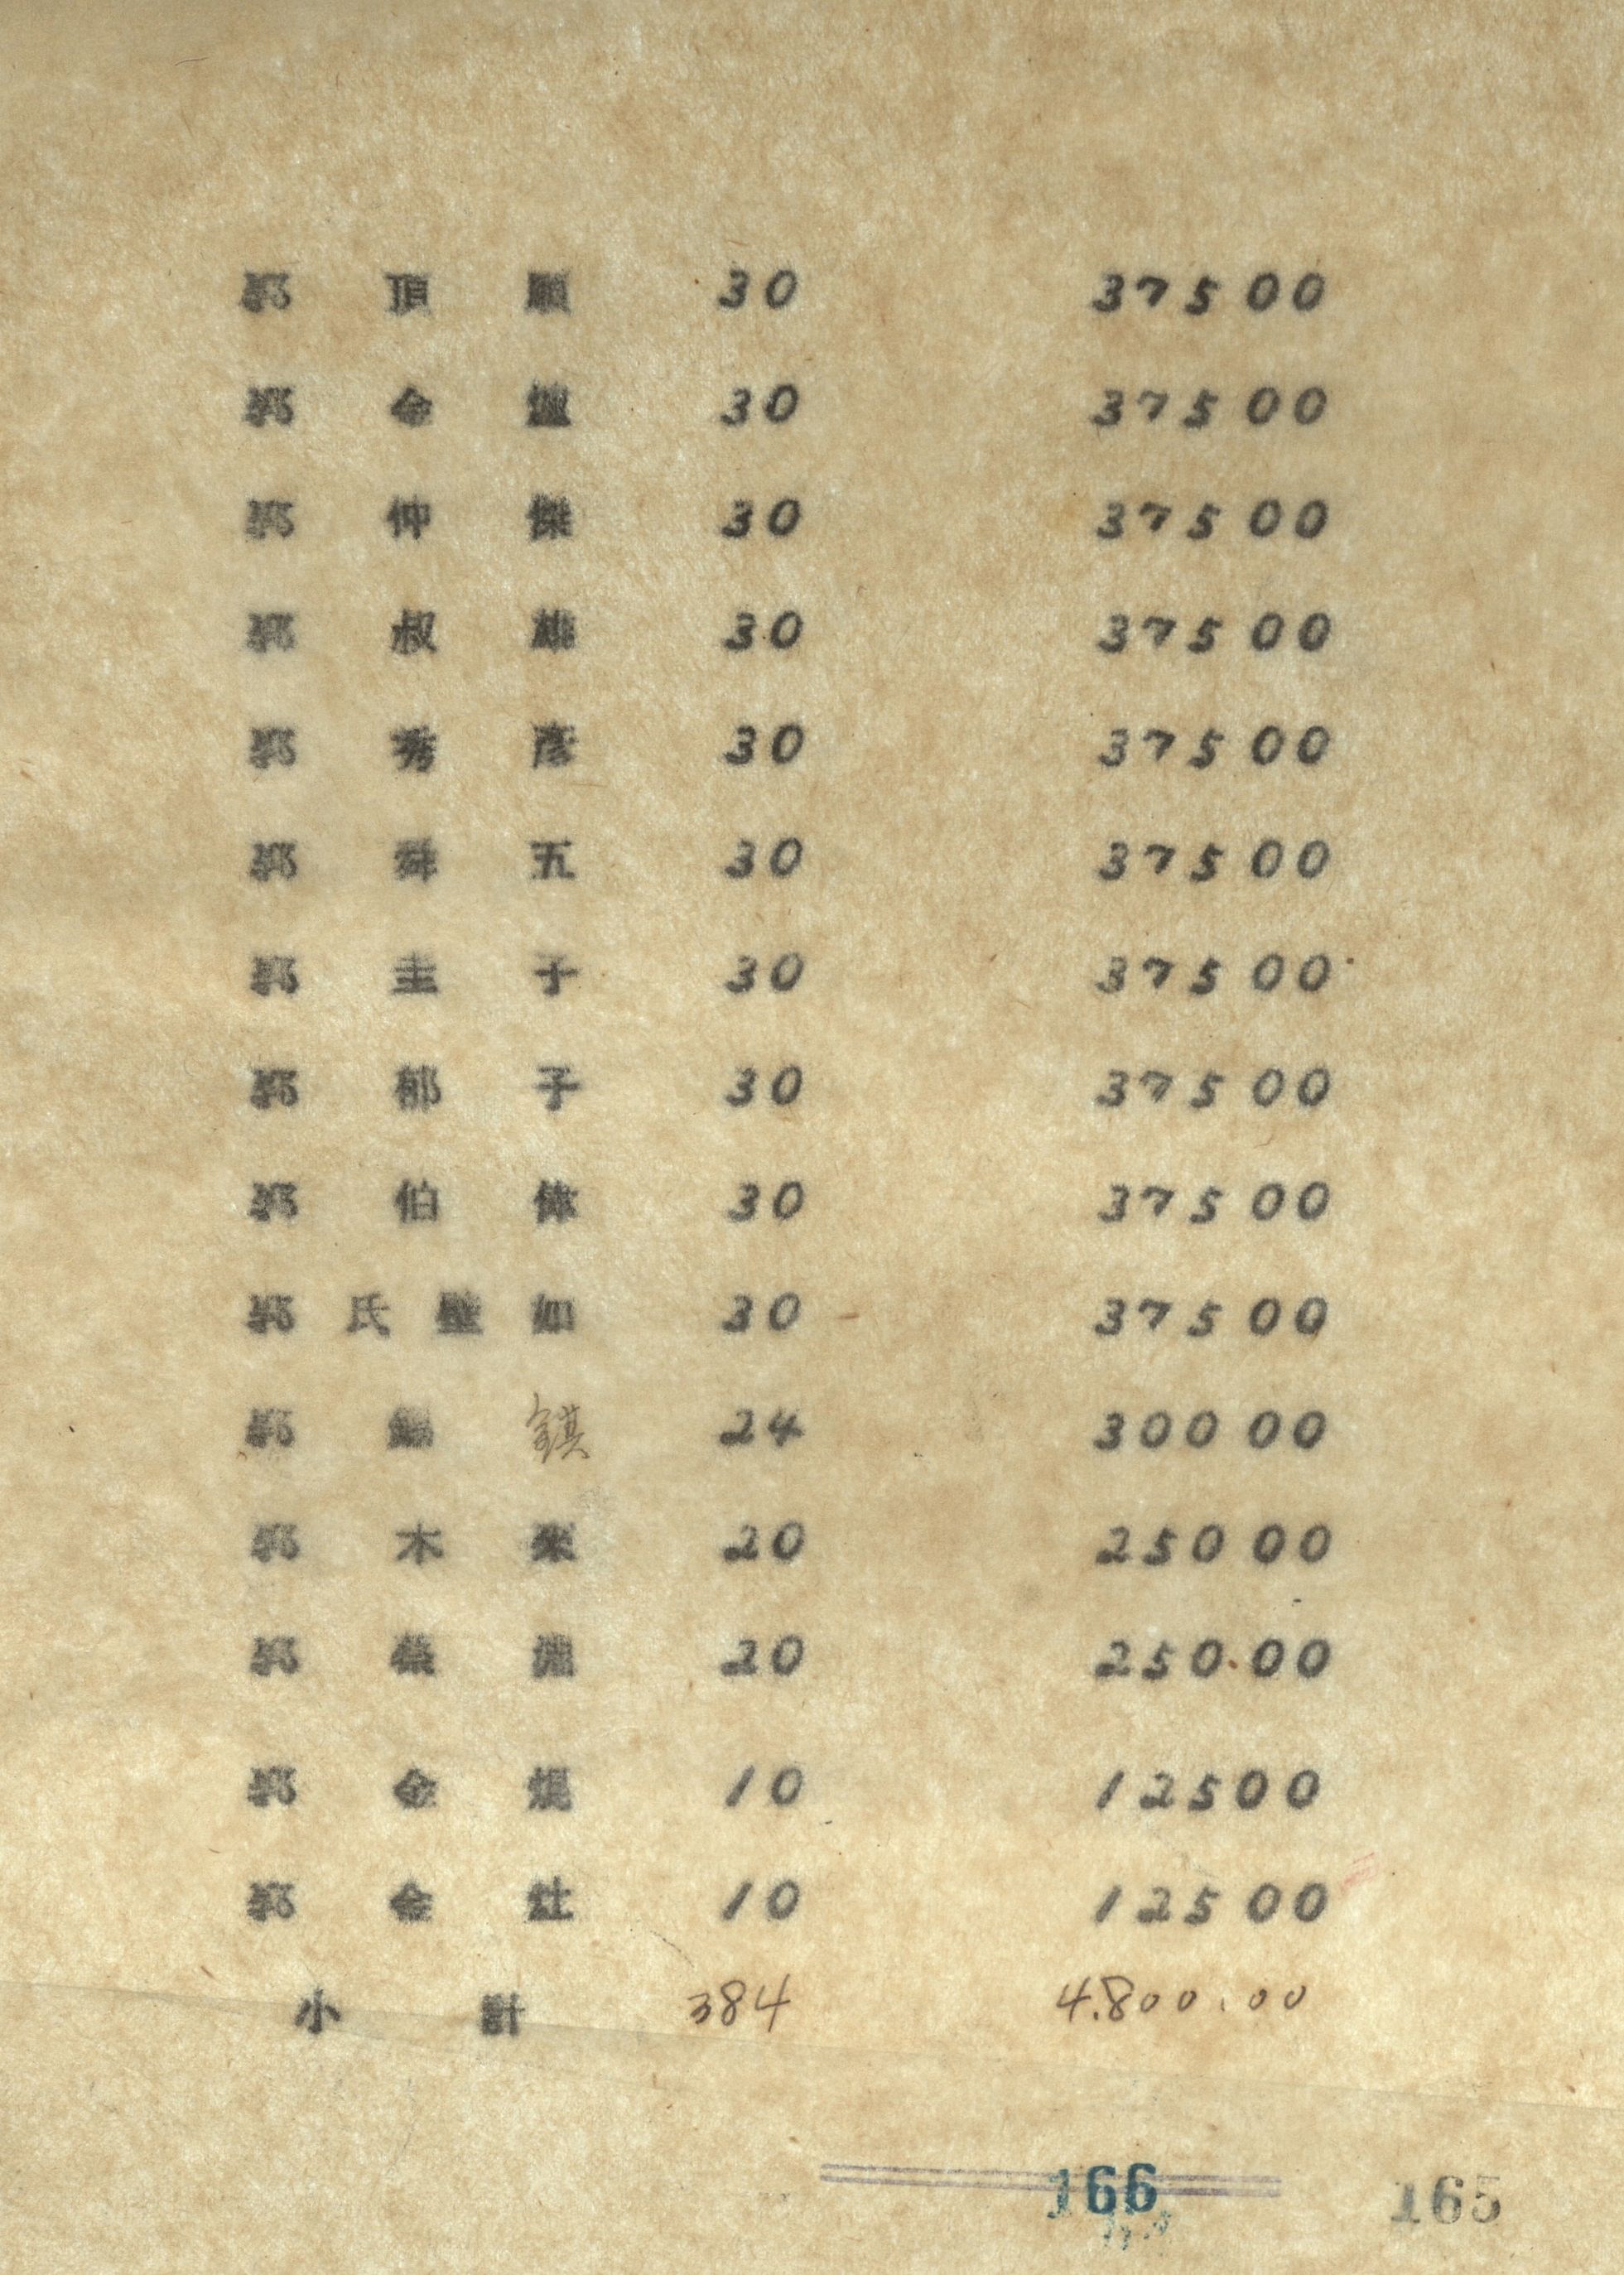 郭 頂 順 30 37500
郭 金 30 37500
郭 仲 傑 30 37500
郭 叔 雄 30 37500
郭 秀 彦 30 37500
郭 舜 五 30 37500
郭 圭 子 30 37500
郭 郁 子 30 37500
郭 伯 偉 30 37500
郭 氏 璧 如 30 37500
郭 錫 錤 24 300 00
郭 木 20 250 00
郭 20 250.00
郭 金 焜 10 12500
郭 金 灶 10 125 00
小 計 384 4.800.00
166 165